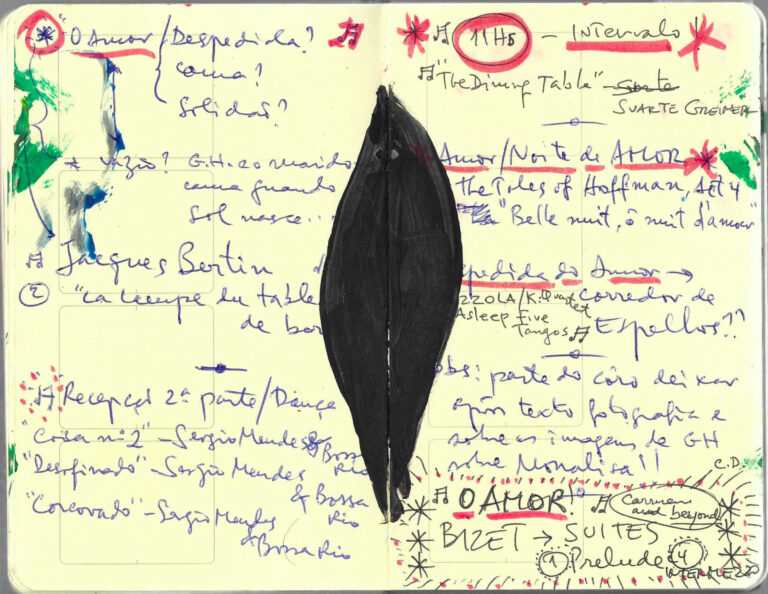 "O Amor/Despedida?
cama?
Solidão?
* vazio? G.H. e o marido
cama quando
Sol nasce...
Jacques Bertin
2 "La lampe du table
de bor
Recepção 2ª parte/Dança
"Coisa nº 2" - Sergio Mendes & Bossa Rio
"Desafinado" - Sergio Mendes & Bossa Rio
"Corcovado" - Sergio Mendes & Bossa Rio
11Hs - Intervalo!
"The Dining Table"
Amor/Noite de AMOR
The Tales of Hoffman, Act 4
"Belle nuit, ô nuit d'amour"
pedida do Amor →
ZZOLA/K.Quartet corredor de
Asleep Five
Tangos Espelhos??
obs: parte do côro deixar
após texto fotografia e
sobre as imagens de GH
sobre Monalisa!!
C.D.
O AMOR Carmen and beyond
BIZET → SUITES
1 Prelude 4 INTERMEZZO